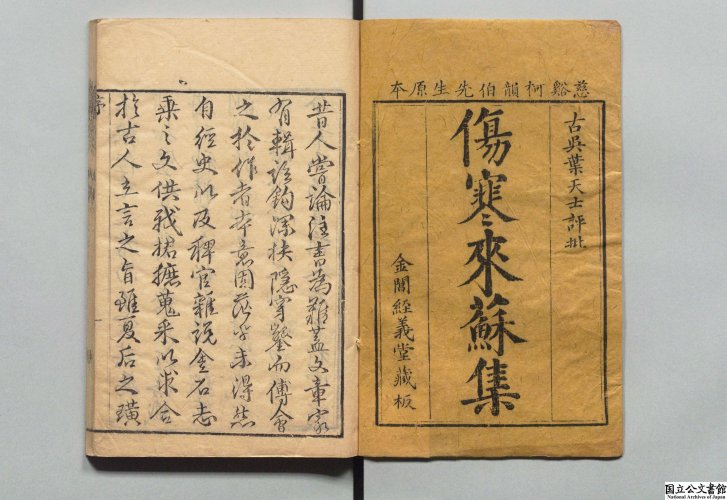 慈谿柯韻伯先生原本
古吳葉天士評批
傷寒來蘇集
金閶經義堂藏板
昔人嘗論注書為難蓋文章家
有輯註鈎深抉隱穿鑿而傅會
之於作者本意固茫乎未得然
自經史以及稗官雜說金石志
乘之文供我捃摭蒐采以求合
於古人立言之旨雖夏后之璜
序
国立公文書館
National Archives of Japan